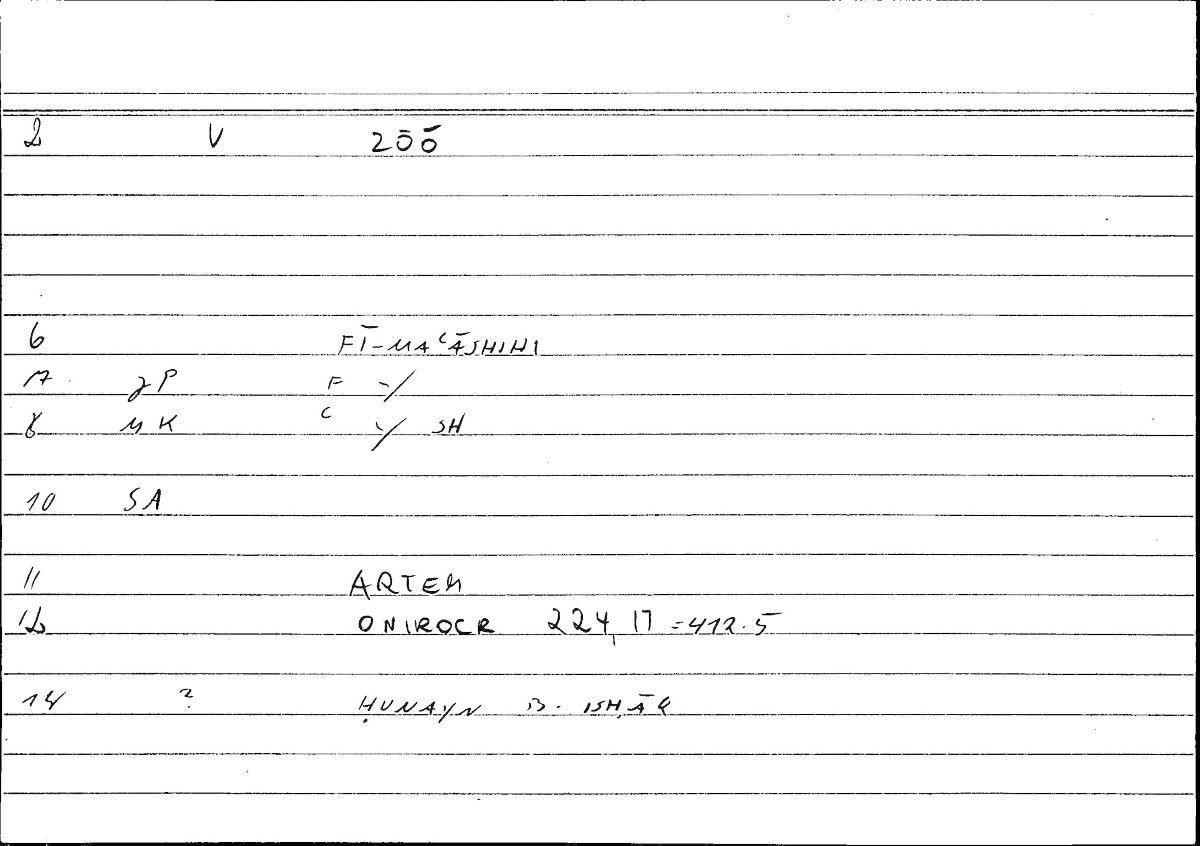 2 V 2ōō
6 FĪ-MAʿĀSHIHI
7 F -/
8 MK ʿ -/ SH
10 SA
11 ARTEM
12 ONIROCR 224,17 =412.5
14 ? ḤUNAYN B. ISḤĀQ